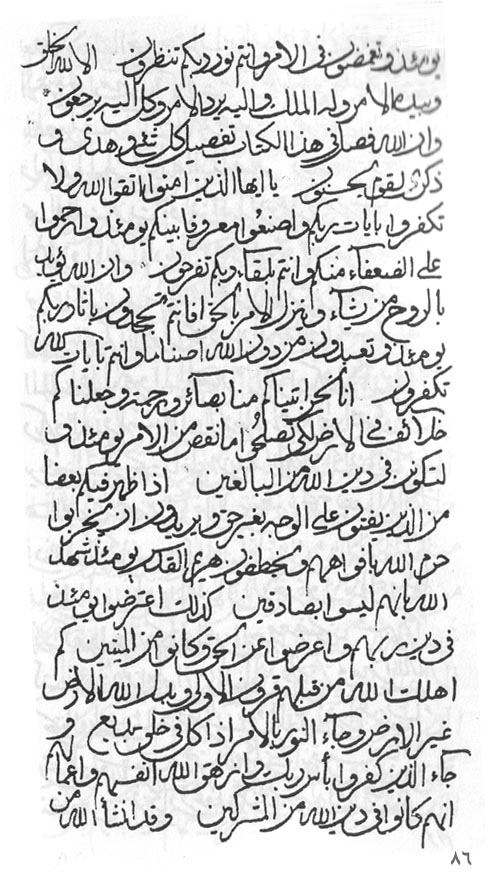 يومئذ وتغمضون في الامر وانتم نور ربكم تنظرون الا لله الخلق
وبيده الامر وله الملك واليه يرد الامر وكل اليه يرجعون
وان الله فصل في هذا الكتاب تفصيل كل شئ وهدى و
ذكرى لقوم يحسنون يا ايها الذين امنوا اتقوا الله ولا
تكفروا بايات ربكم واصنعوا معروفا بينكم يومئذ وارحموا
على الضعفاء منكم وانتم بلقاء ربكم تفرحون وان الله يؤيد
بالروح من يشاء وينزل الامر بالحق افانتم تجحدون باثار ربكم
يومئذ وتعبدون من دون الله اصناما وانتم بايات الله
تكفرون انا نحن اتيناكم منا بصائر ورحمة وجعلناكم
خلائف في الارض لكي تصلحوا ما نقص من الامر يومئذ و
لتكونن في دين الله من البالغين اذا ظهر فيكم بعضا
من الذين يفتنون على الوجه بغير حق ويريدون ان يخربوا
حرم الله بافواههم ويخطفون هريم القدس يومئذ شهد
الله بانهم ليسوا بصادقين كذلك اعترضوا يومئذ
في دين ربهم واعرضوا عن الحق وكانوا من الميتين كم
اهلك الله من قبلهم قرون الاولى ويبدل الله الارض
غير الارض وجاء النور بالامر اذا كل في خلق بديع و
جاء الذين كفروا بأس ربك وازهق الله انفسهم واعمالهم
انهم كانوا في دين الله من المشركين وقد انشأ الله من
٨٦